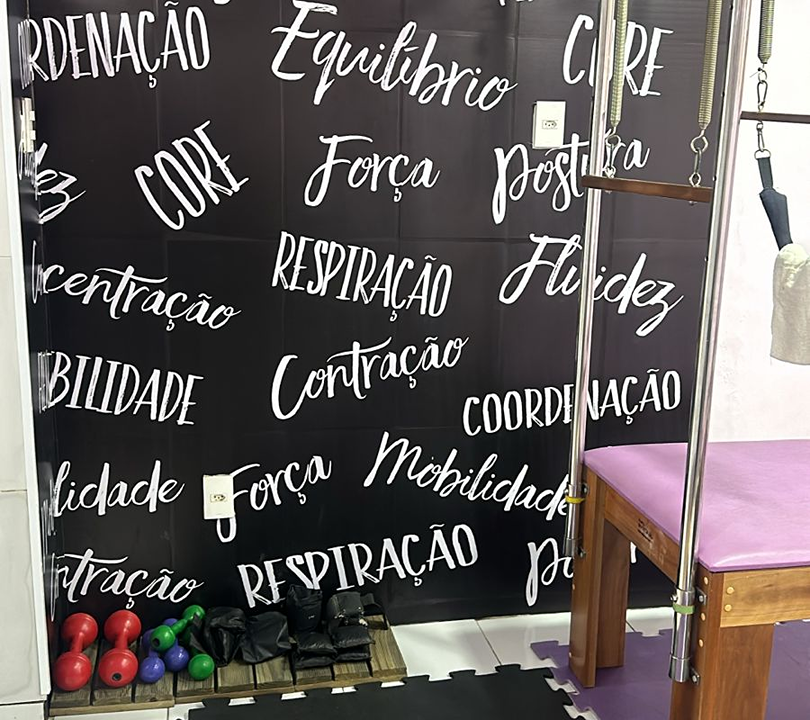 RDENAÇÃO Equilíbrio CORE
ez CORE Força Postura
centração RESPIRAÇÃO Fluidez
BILIDADE Contração COORDENAÇÃO
lidade Força Mobilidade
ntração RESPIRAÇÃO Po